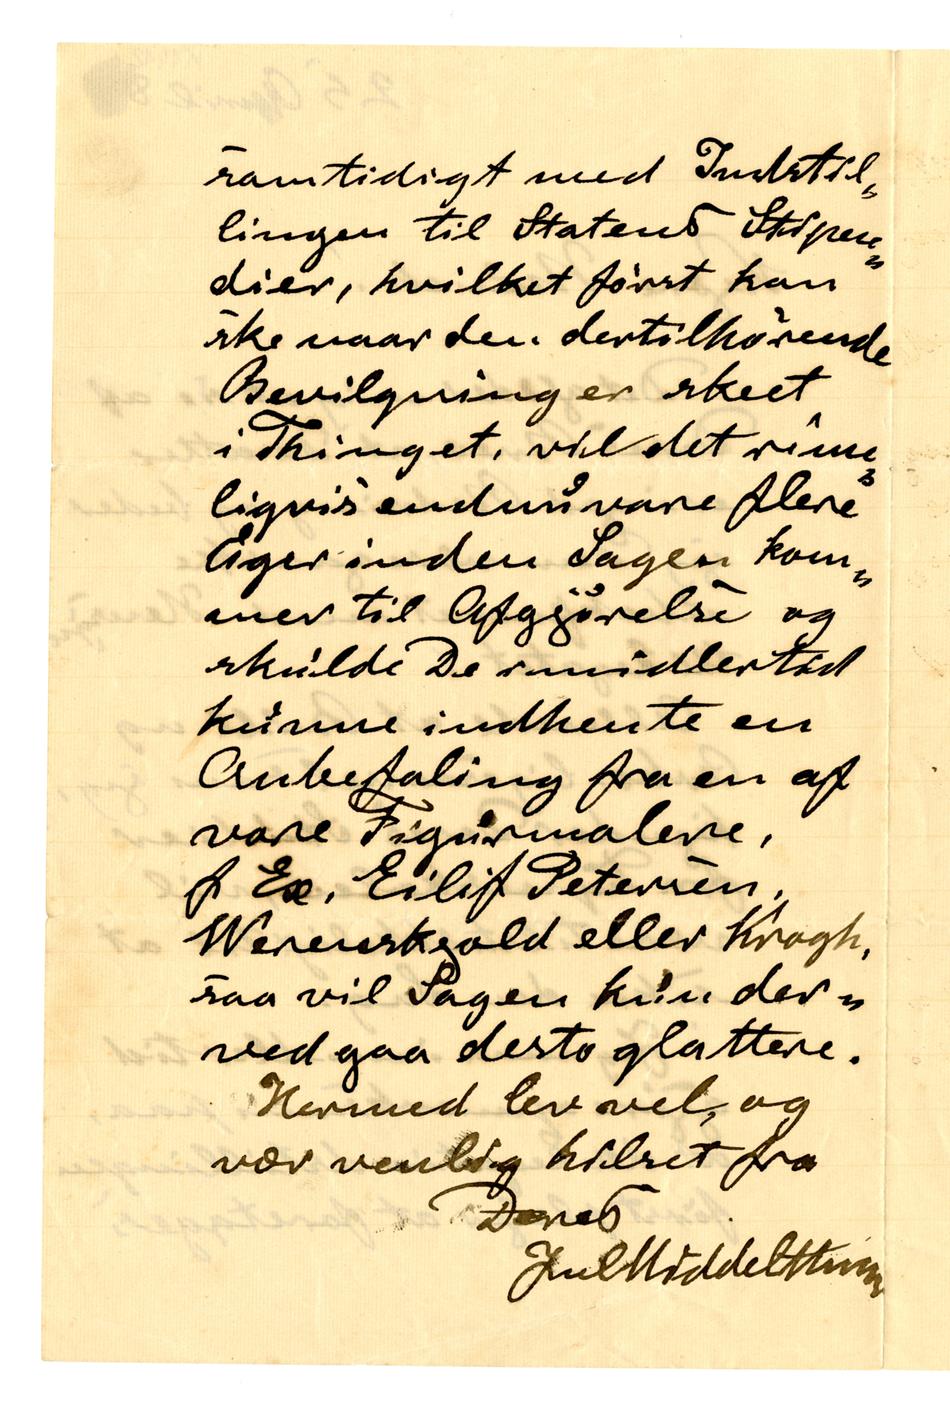 samtidigt med Indstil„
lingen til Statens Stipen„
dier, hvilket först kan
ske naar den dertilhörende
Bevilgning er skeet
i Thinget, vil det rime„
ligvis endnu vare flere
Uger inden Sagen kom„
mer til Afgjörelse og
skulde De imidlertid
kunne indhente en
Anbefaling fra en af
vore Figurmalere,
f Ex, Eilif Peterssen,
Werenskjold eller Krogh,
saa vil Sagen kun der„
ved gaa desto glattere.
Hermed lev vel, og
vær venlig hilset fra
Deres
Jul Middelthun